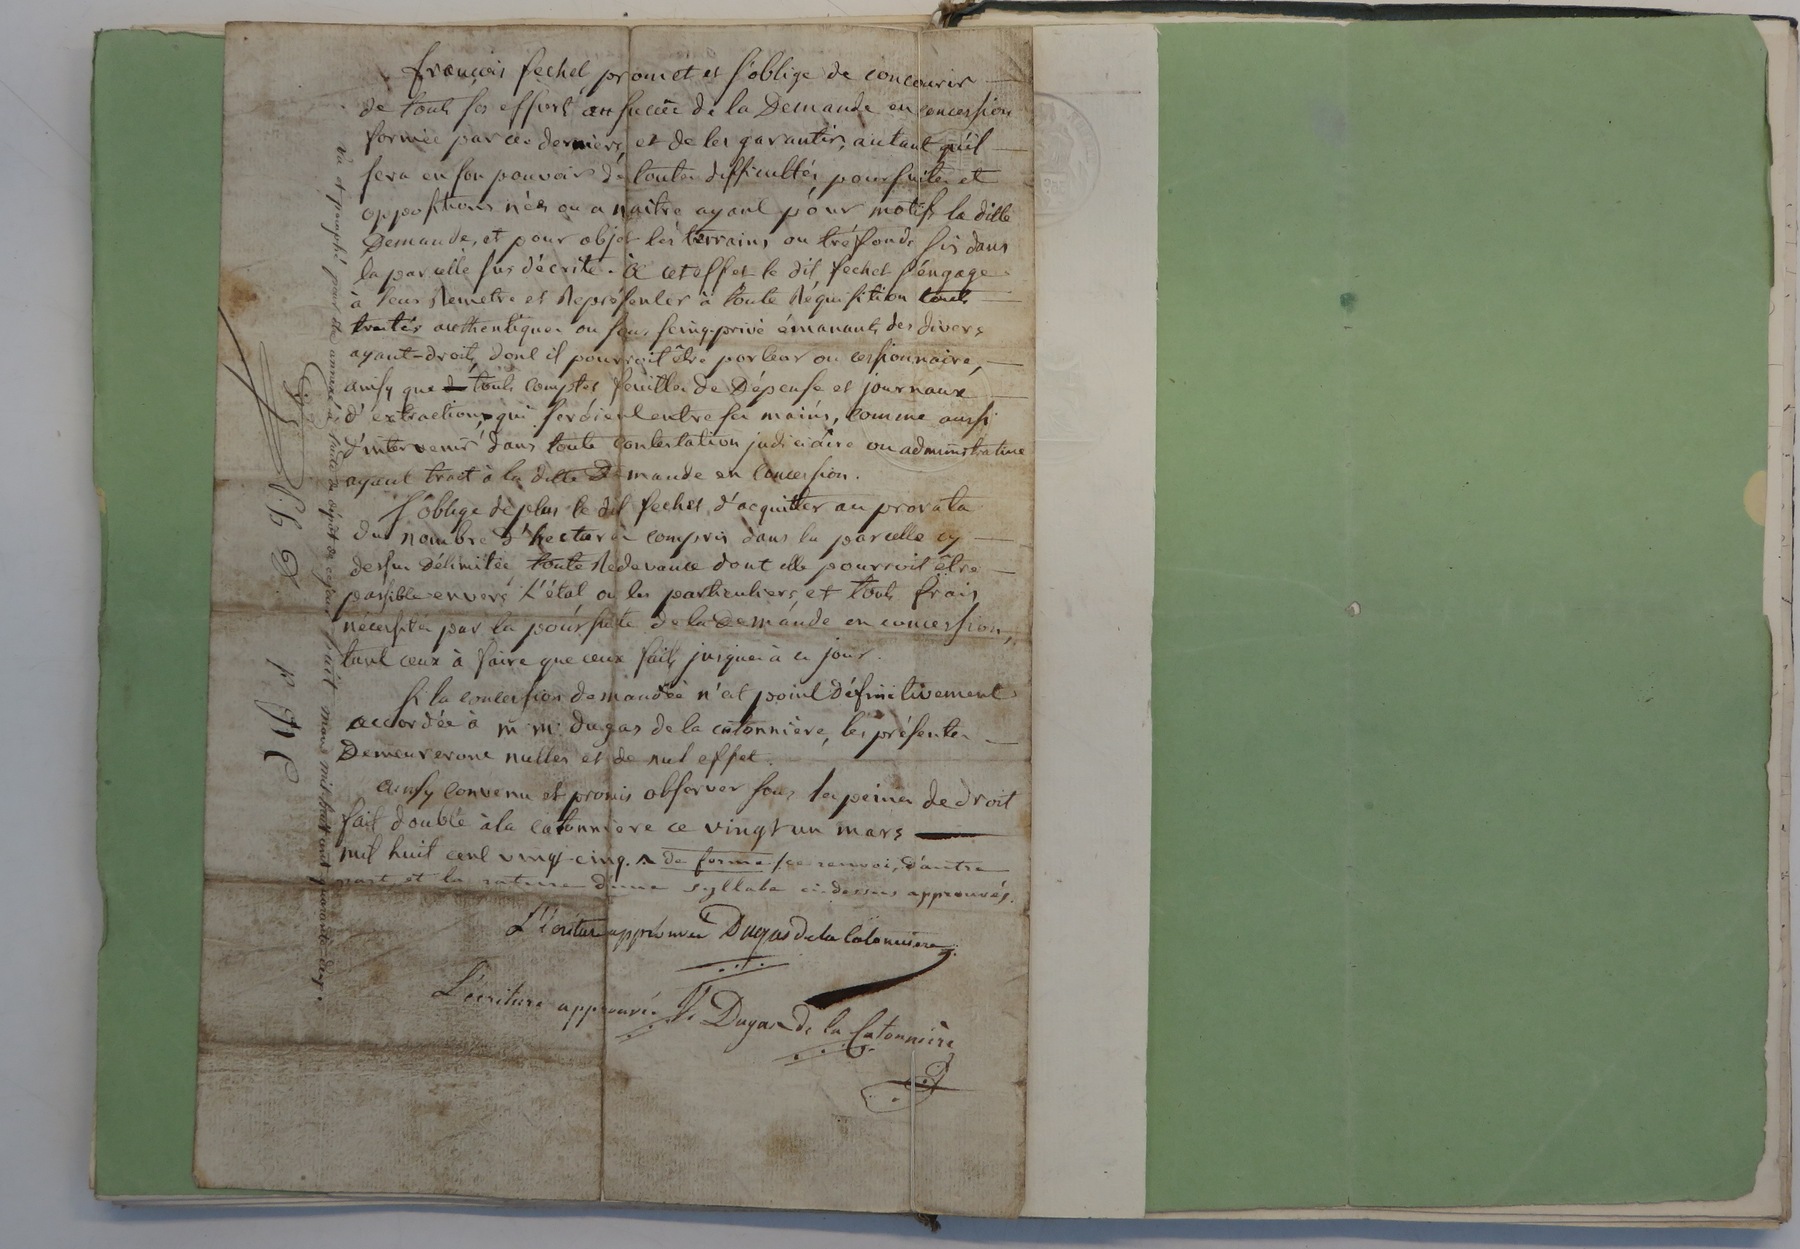 françois fechet promet et s'oblige de concourir
de touts ses efforts au succèe de la Demande en concession
formée par ces derniers, et de les garantir, autant qu'il
sera en son pouvoir de toutes difficultés, poursuites et
oppositions nées ou a naitre ayant pour motifs la ditte
Demande, et pour objet les terrains ou tréfonds sis dans
la parcelle sus décrite. à cet effet le dit fechet s'engage
à leur Remetre et Représenter à toute Réquisition touts
traités authentiques ou sous seing-privé émanants des divers
ayant-droit, dont il pourroit être porteur ou cessionnaire,
ainsy que touts comptes feuilles de Dépense et journaux
d'extraction, qui seroient entre ses mains, comme aussi
d'intervenir dans toute contestation judiciaire ou administrative
ayant trait à la ditte Demande en concession.
S'oblige de plus le dit fechet, d'acquitter au prorata
du nombre d'hectares compris dans la parcelle cy
dessus Délimitée toute Redevance dont elle pourroit être
passible envers L'état ou les particuliers et touts frais
nécessités par la poursuite de la Demande en concession,
tant ceux à faire que ceux faits jusques à ce jour.
Si la concession demandée n'est point définitivement
accordée à m.m. dugas de la catonnière, les présentes
Demeureront nulles et de nul effet.
ainsy convenu et promis observer sous les peines de droit
fait double à la catonnière ce vingt un mars
mil huit cent vingt-cinq. de forme, ce renvoi, d'autre
part, et la rature d'une syllabe ci-dessus approuvés.
L'écriture approuvée Dugas de la Catonnière
L'écriture approuvée Dugas de la Catonnière